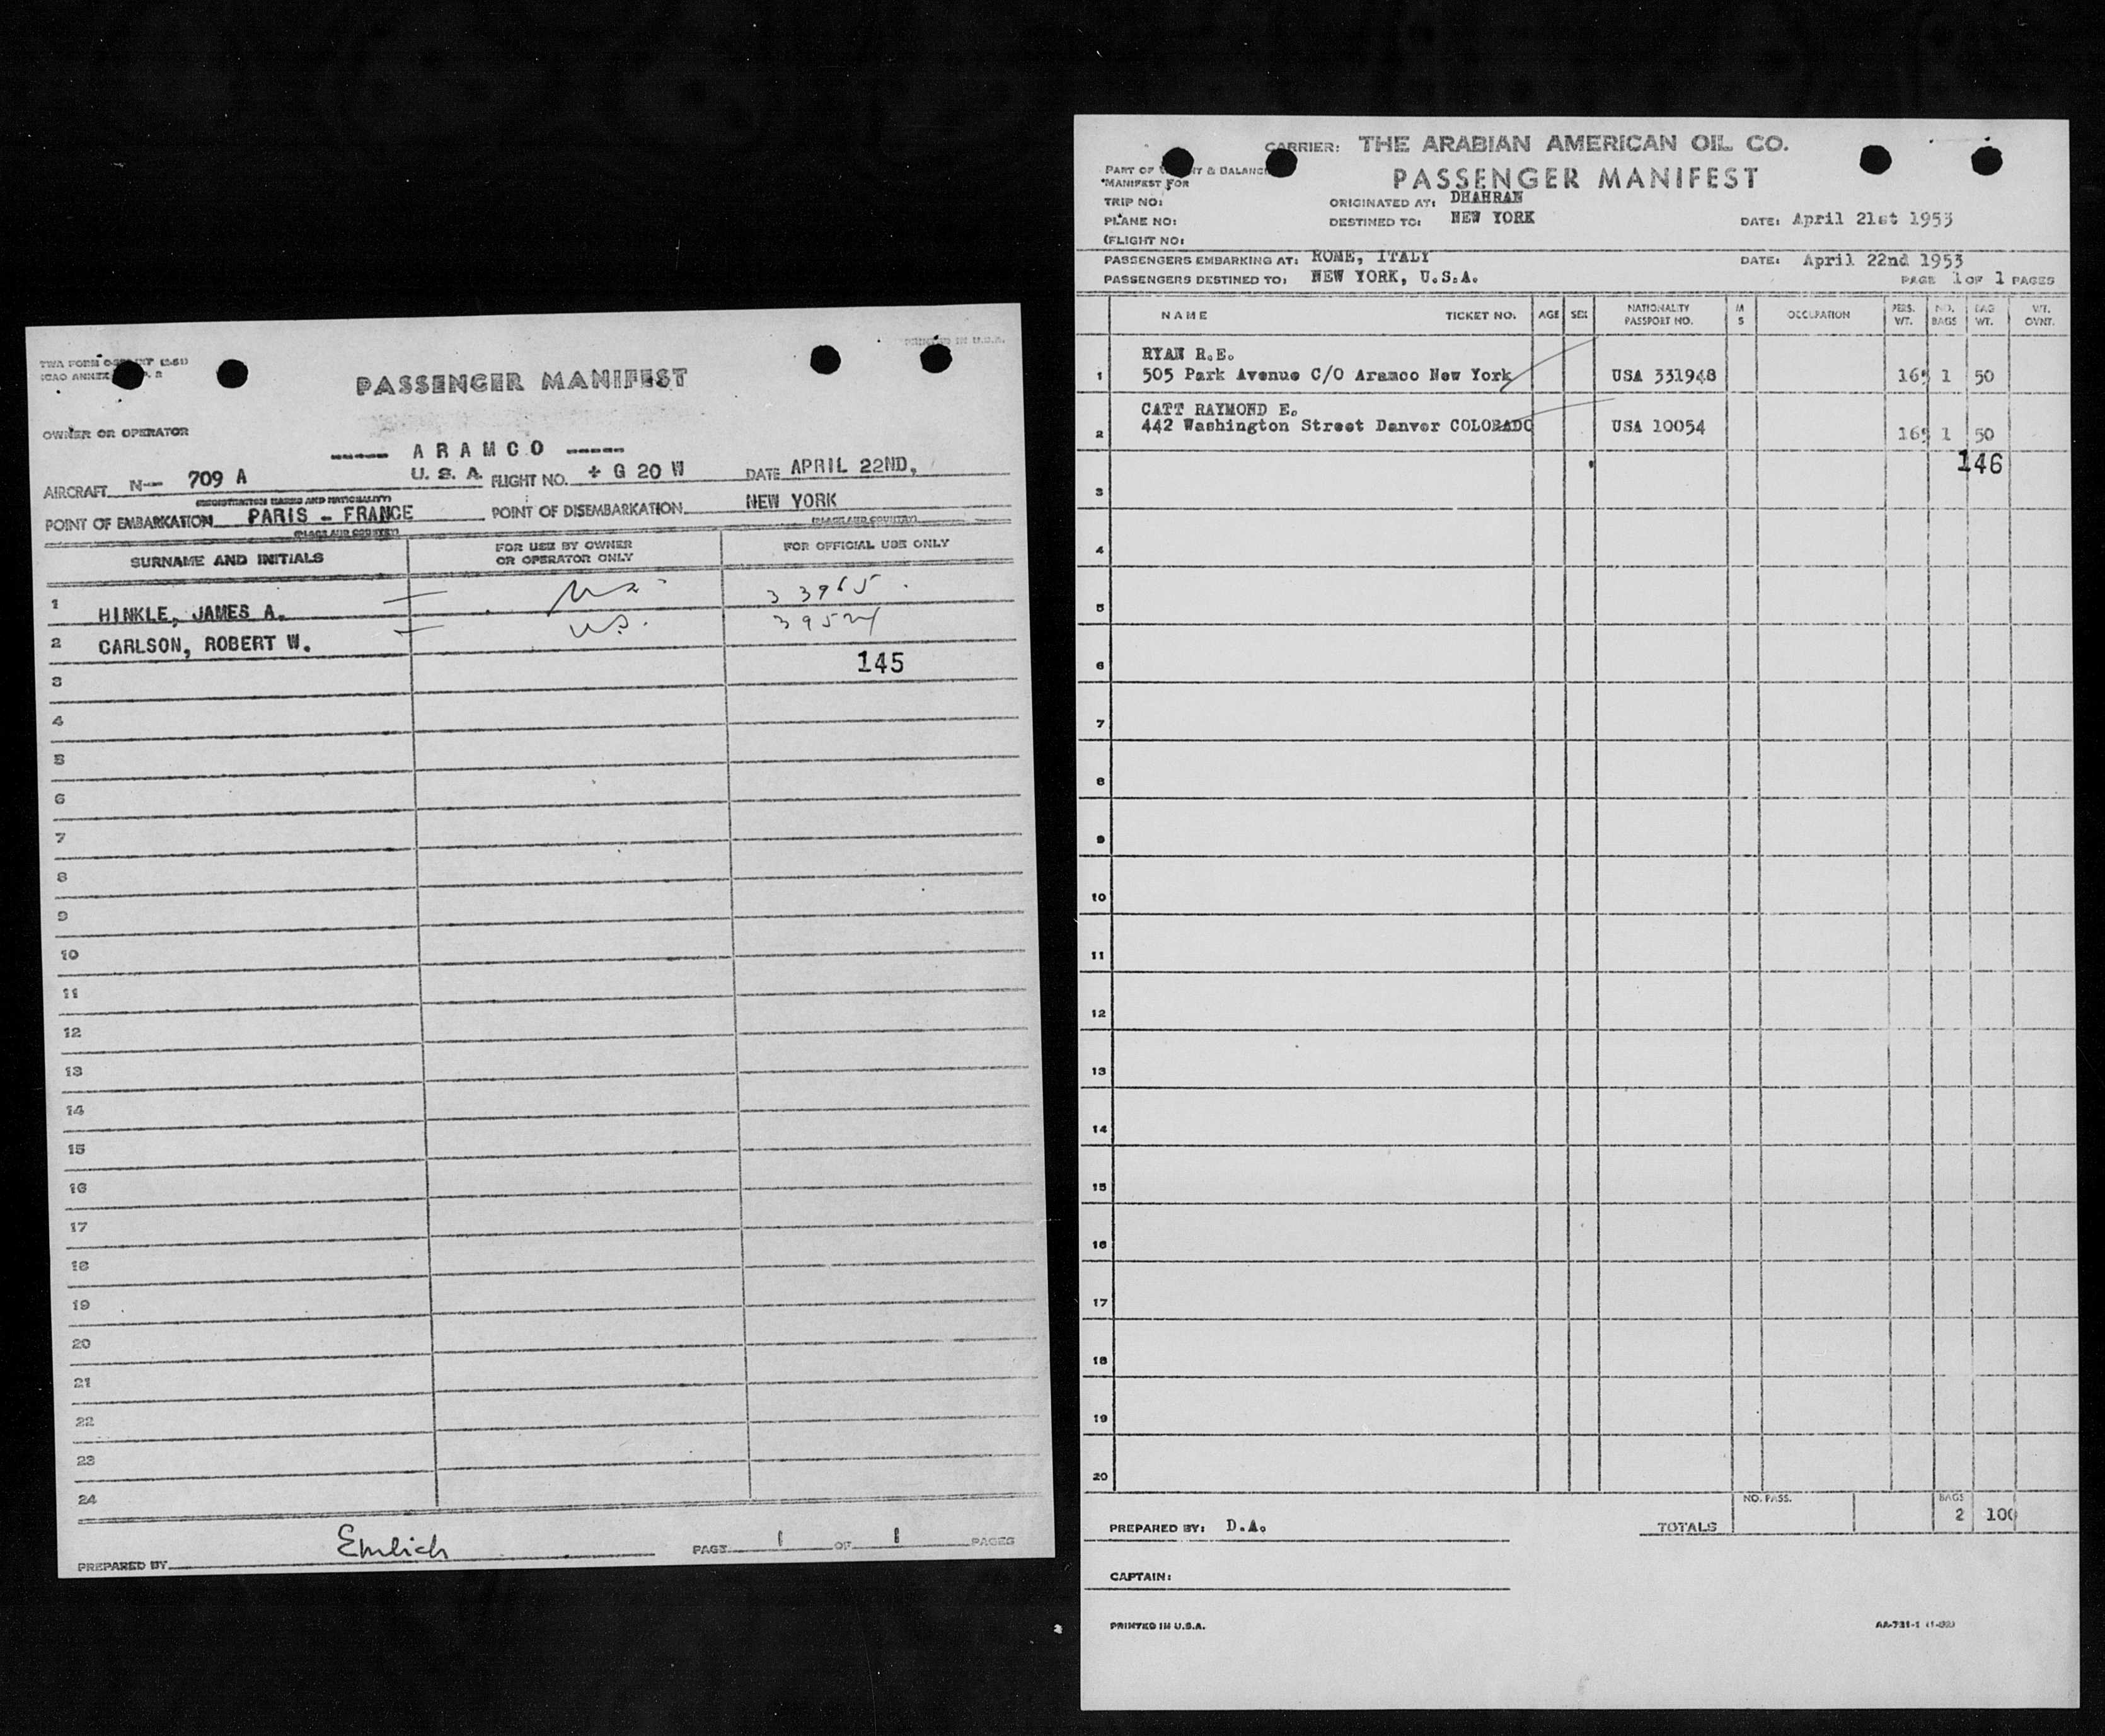 PRINTED IN U.S.A.
PASSENGER MANIFEST
OWNER OR OPERATOR
----- A R A M C O -----
AIRCRAFT N-- 709 A U. S. A. FLIGHT NO. + G 20 W DATE APRIL 22ND,
(REGISTRATION MARKS AND NATIONALITY)
POINT OF EMBARKATION PARIS - FRANCE POINT OF DISEMBARKATION NEW YORK
(PLACE AND COUNTRY) (PLACE AND COUNTRY)
SURNAME AND INITIALS FOR USE BY OWNER OR OPERATOR ONLY FOR OFFICIAL USE ONLY
1 HINKLE, JAMES A. 33965
2 CARLSON, ROBERT W. U.S.
3 145
4
5
6
7
8
9
10
11
12
13
14
15
16
17
18
19
20
21
22
23
24
PREPARED BY PAGE 1 OF 1 PAGES
CARRIER: THE ARABIAN AMERICAN OIL CO.
PART OF & BALANCE
PASSENGER MANIFEST
"MANIFEST FOR
TRIP NO: ORIGINATED AT: DHAHRAN
PLANE NO: DESTINED TO: NEW YORK DATE: April 21st 1953
(FLIGHT NO:
PASSENGERS EMBARKING AT: ROME, ITALY DATE: April 22nd 1953
PASSENGERS DESTINED TO: NEW YORK, U.S.A. PAGE 1 OF 1 PAGES
NAME TICKET NO. AGE SEX NATIONALITY PASSPORT NO. M S OCCUPATION PERS. WT. NO. BAGS BAG WT. WT. OVNT.
RYAN R.E.
1 505 Park Avenue C/O Aramco New York USA 331948 165 1 50
CATT RAYMOND E.
2 442 Washington Street Danver COLORADO USA 10054 165 1 50
146
3
4
5
6
7
8
9
10
11
12
13
14
15
16
17
18
19
20
NO. PASS. BAGS
PREPARED BY: D.A. TOTALS 2 100
CAPTAIN:
PRINTED IN U.S.A. AA-731-1